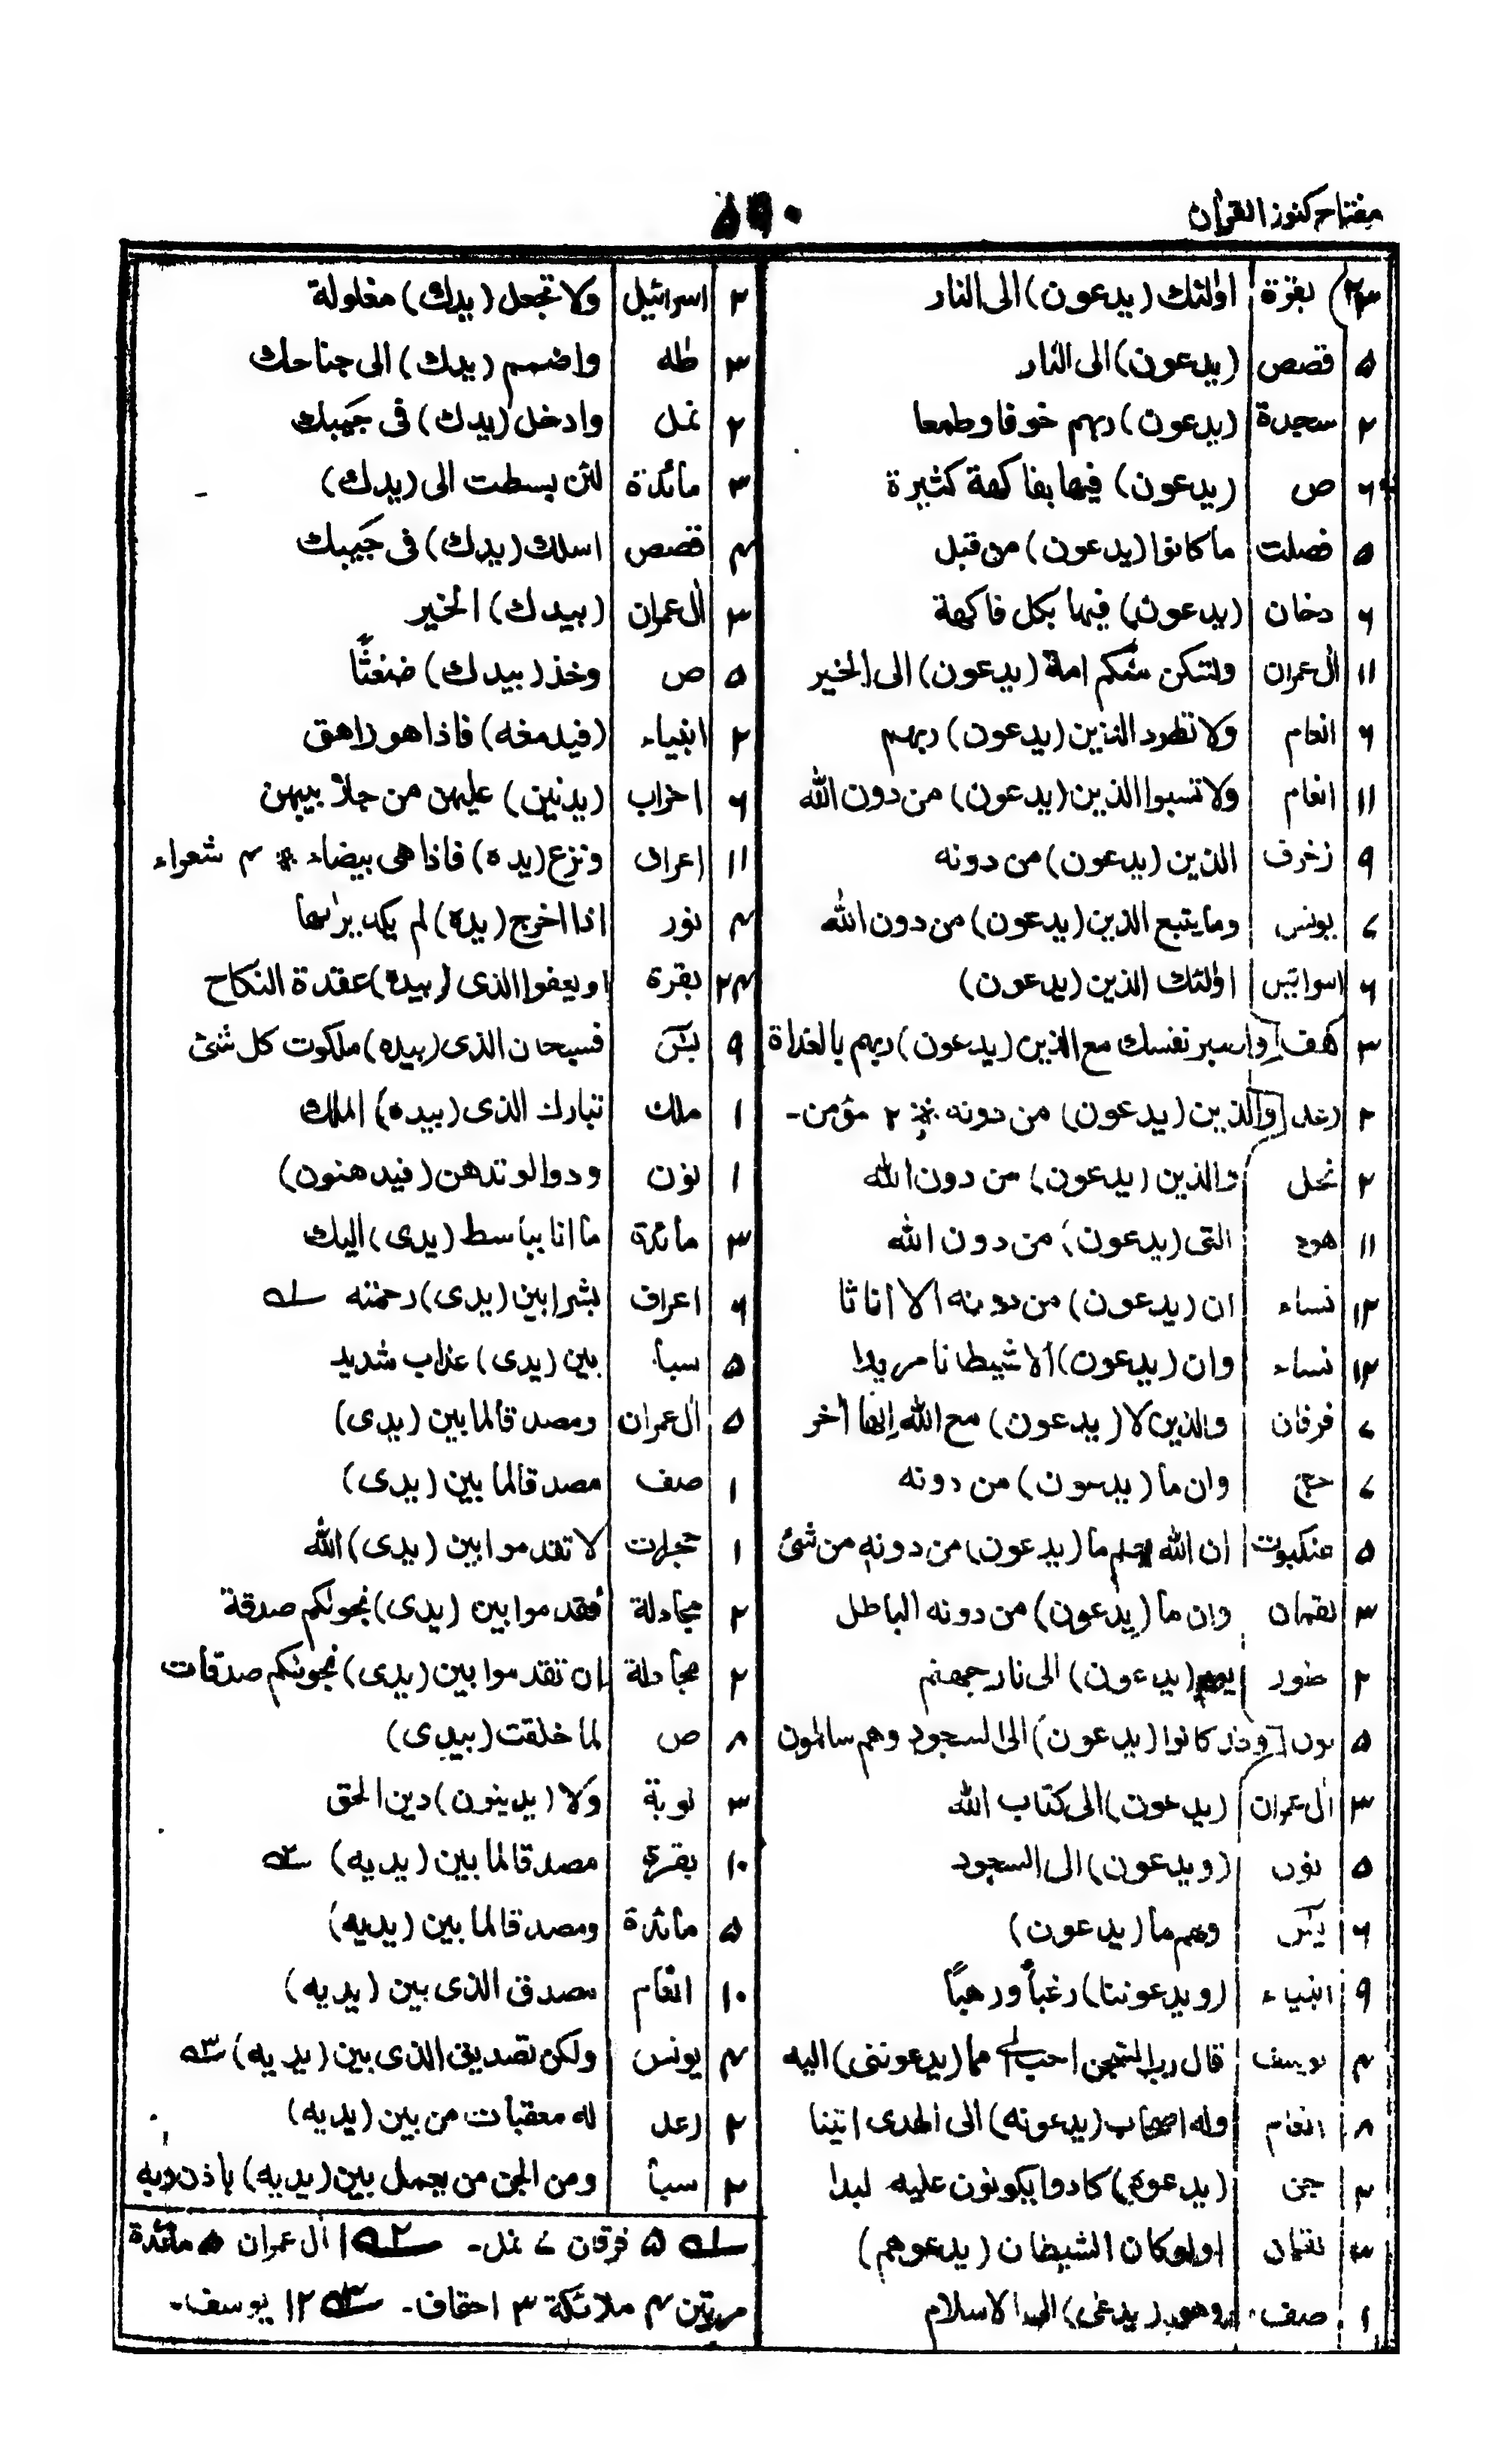 مفتاح كنوز القرآن
۵۹۰
بقرة اولئك (يدعون) الى النار
۵ قصص (يدعون) الى النار
۲ سجدة (يدعون) ربهم خوفا وطمعا
۴ ص (يدعون) فيها بفاكهة كثيرة
۵ فصلت ما كانوا (يدعون) من قبل
۶ دخان (يدعون) فيها بكل فاكهة
۱۱ اٰل عمران ولتكن منكم امة (يدعون) الى الخير
۶ انعام ولا تطرد الذين (يدعون) ربهم
۱۱ انعام ولا تسبوا الذين (يدعون) من دون الله
۹ زخرف الذين (يدعون) من دونه
۷ يونس وما يتبع الذين (يدعون) من دون الله
۶ اسرائيل اولئك الذين (يدعون)
۳ كهف واصبر نفسك مع الذين (يدعون) ربهم بالغداة
۲ رعد والذين (يدعون) من دونه ※ ۲ مؤمن۔
۲ نحل والذين (يدعون) من دون الله
۱۱ هود التى (يدعون) من دون الله
۱۲ نساء ان (يدعون) من دونه الا اناثا
۱۲ نساء وان (يدعون) الا شيطانا مريدا
۶ فرقان والذين لا (يدعون) مع الله اِلٰها اٰخر
۷ حج وان ما (يدعون) من دونه
۵ عنكبوت ان الله يعلم ما (يدعون) من دونه من شئ
۳ لقمان وان ما (يدعون) من دونه الباطل
۲ طور يوم (يدعون) الى نار جهنم
۵ نون وقد كانوا (يدعون) الى السجود وهم سالمون
۳ اٰل عمران (يدعون) الى كتاب الله
۵ نون (ويدعون) الى السجود
۴ يٰسٓ ولهم ما (يدعون)
۹ انبياء (ويدعوننا) رغباً ورهباً
۴ يوسف قال رب السجن احب الى مما (يدعوننى) اليه
۸ انعام وله اصحاب (يدعونه) الى الهدى ائتنا
۲ جن (يدعوه) كادوا يكونون عليه لبدا
۳ لقمان اولو كان الشيطان (يدعوهم)
۱ صف وهو (يدعى) الى الاسلام
۲ اسرائيل ولا تجعل (يدك) مغلولة
۳ طٰه واضمم (يدك) الى جناحك
۲ نمل وادخل (يدك) فى جَيْبك
۳ مائدة لئن بسطت الى (يدك)
۴ قصص اسلك (يدك) فى جَيْبك
۳ اٰل عمران (بيدك) الخير
۵ ص وخذ (بيدك) ضغثًا
۲ انبياء (فيدمغه) فاذا هو زاهق
۶ احزاب (يدنين) عليهن من جلابيبهن
۱۱ اعراف ونزع (يده) فاذا هى بيضاء ※ ۴ شعراء
۴ نور اذا اخرج (يده) لم يكد يراها
۲۴ بقرة او يعفوا الذى (بيده) عقدة النكاح
۹ يٰسٓ فسبحان الذى (بيده) ملكوت كل شئ
۱ ملك تبارك الذى (بيده) الملك
۱ نون ودوا لو تدهن (فيدهنون)
۳ مائدة ما انا بباسط (يدى) اليك
۶ اعراف بشرا بين (يدى) رحمته ؎۱
۵ سبأ بين (يدى) عذاب شديد
۵ اٰل عمران ومصدقا لما بين (يدى)
۱ صف مصدقا لما بين (يدى)
۱ حجرات لا تقدموا بين (يدى) الله
۲ مجادلة فقدموا بين (يدى) نجوٰىكم صدقة
۲ مجادلة ان تقدموا بين (يدى) نجوٰىكم صدقات
۸ ص لما خلقت (بيدى)
۳ توبة ولا (يدينون) دين الحق
۱۰ بقرة مصدقا لما بين (يديه) ؎۲
۵ مائدة ومصدقا لما بين (يديه)
۱۰ انعام مصدق الذى بين (يديه)
۴ يونس ولكن تصديق الذى بين (يديه) ؎۳
۲ رعد له معقبات من بين (يديه)
۲ سبأ ومن الجن من يعمل بين (يديه) باذن ربه
؎۱ ۵ فرقان ۷ نمل۔ ؎۲ ۱ اٰل عمران ۵ مائدة
مرتين ۴ ملائكة ۳ احقاف۔ ؎۳ ۱۲ يوسف۔